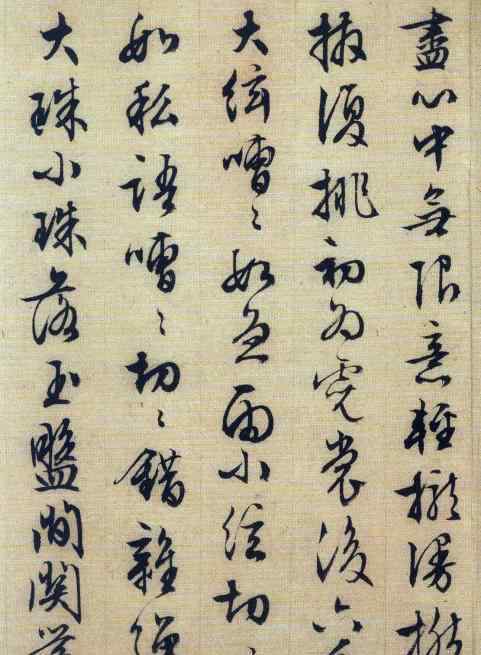 盡心中無限意輕攏漫撚
撥復挑初為霓裳後六
大絃嘈〻如急雨小絃切〻
如私語嘈〻切〻錯雜彈
大珠小珠落玉盤間關